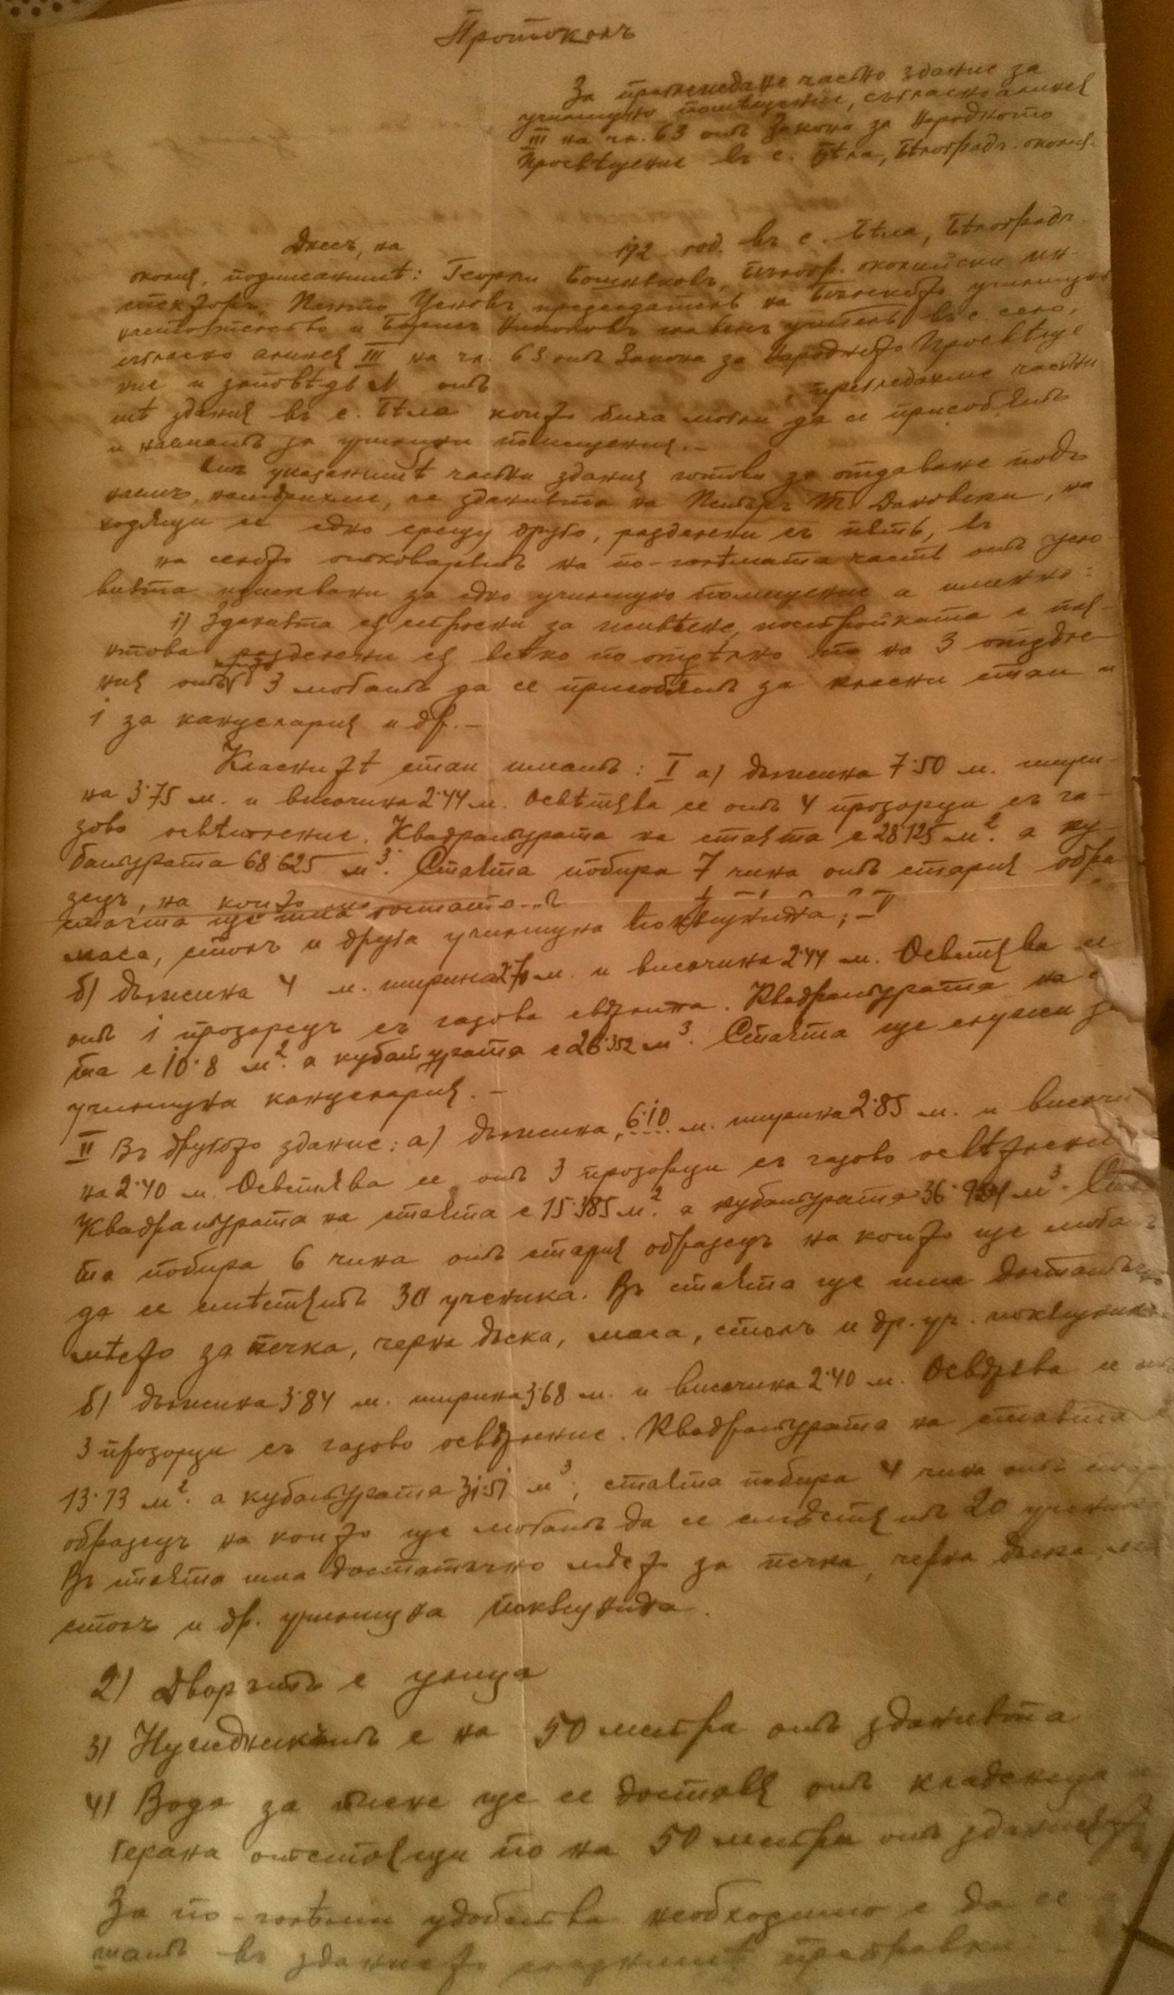 Протоколъ
За преглеждане частно здание за
училищно помѣщение, съгласно алинея
III на чл. 63 отъ Закона за Народното
Просвѣщение въ с. Бѣла, Бѣлоградч. околия.
Днесъ, на 192 год. въ с. Бѣла, Бѣлоградч.
околия, подписанитѣ: Георги Бошняковъ, околийски ин-
спекторъ, Пенто Ценовъ председатель на училищно
настоятелство и Борисъ Николовъ главенъ учитель въ с. село,
съгласно алинея III на чл. 63 отъ Закона за Народното Просвѣще
ние и заповѣдь № отъ , прегледахме частни
тѣ здания въ с. Бѣла които биха могли да се приспособятъ
и наематъ за училищни помещения. —
Отъ указанитѣ частни здания готови за отдаване подъ
наемъ, намѣрихме, че зданията на Петъръ Т. Данковски, на
ходящи се едно срещу друго, разделени съ пѫть, въ
на селото отговарятъ на по-голѣмата часть отъ усло
вията изисквани за едно училищно помещение а именно:
1) Зданията сѫ строени за живѣене, постройката е
разделени сѫ всѣко по отдѣлно то на 3 отделе
ния отъ които 3 могатъ да се приспособятъ за класни стаи и
1 за канцелария и др. —
Класнитѣ стаи иматъ: I а) дължина 7·50 м. шири-
на 3·75 м. и височина 2·44 м. Освѣтлява се отъ 4 прозорци съ га-
зово освѣтление. Квадратурата на стаята е 28·125 м². а ку
батурата 68·625 м³. Стаята побира 7 чина отъ стария обра
зецъ, на които
стаята ще има
маса, столъ и друга училищна покѫщнина;
б) дължина 4 м. ширина 2·70 м. и височина 2·44 м. Осветлява се
отъ 1 прозорецъ съ газова светлина. Квадратурата на с
та е 10·8 м². а кубатурата е 26·352 м³. Стаята ще служи за
училищна канцелария. —
II Въ другото здание: а) дължина 6·10 м. ширина 2·85 м. и височи
на 2·40 м. Осветлява се отъ 3 прозорци съ газово освѣтление
Квадратурата на стаята е 15·385 м². а кубатурата 36·924 м³. Стая
та побира 6 чина отъ стария образецъ на които ще могатъ
да се смѣстятъ 30 ученика. Въ стаята ще има достатъчно
мѣсто за печка, черна дъска, маса, столъ и др. уч. покѫщнина
б) дължина 3·84 м. ширина 3·68 м. и височина 2·40 м. Осветлява се отъ
3 прозорци съ газово осветление. Квадратурата на стаята
13·13 м². а кубатурата 31·51 м³; стаята побира 4 чина отъ
образецъ на които ще могатъ да се смѣстятъ 20 ученика
Въ стаята има достатъчно мѣсто за печка, черна дъска, ма
столъ и др. училищна покѫщнина.
2) Дворътъ е улица
3) Нужникътъ е на 50 метра отъ зданията
4) Вода за пиене ще се доставя отъ кладенеца
герана отстоящи по на 50 метра отъ зданията
За по-голѣми удобства необходимо е да се
въ зданието следнитѣ преправки